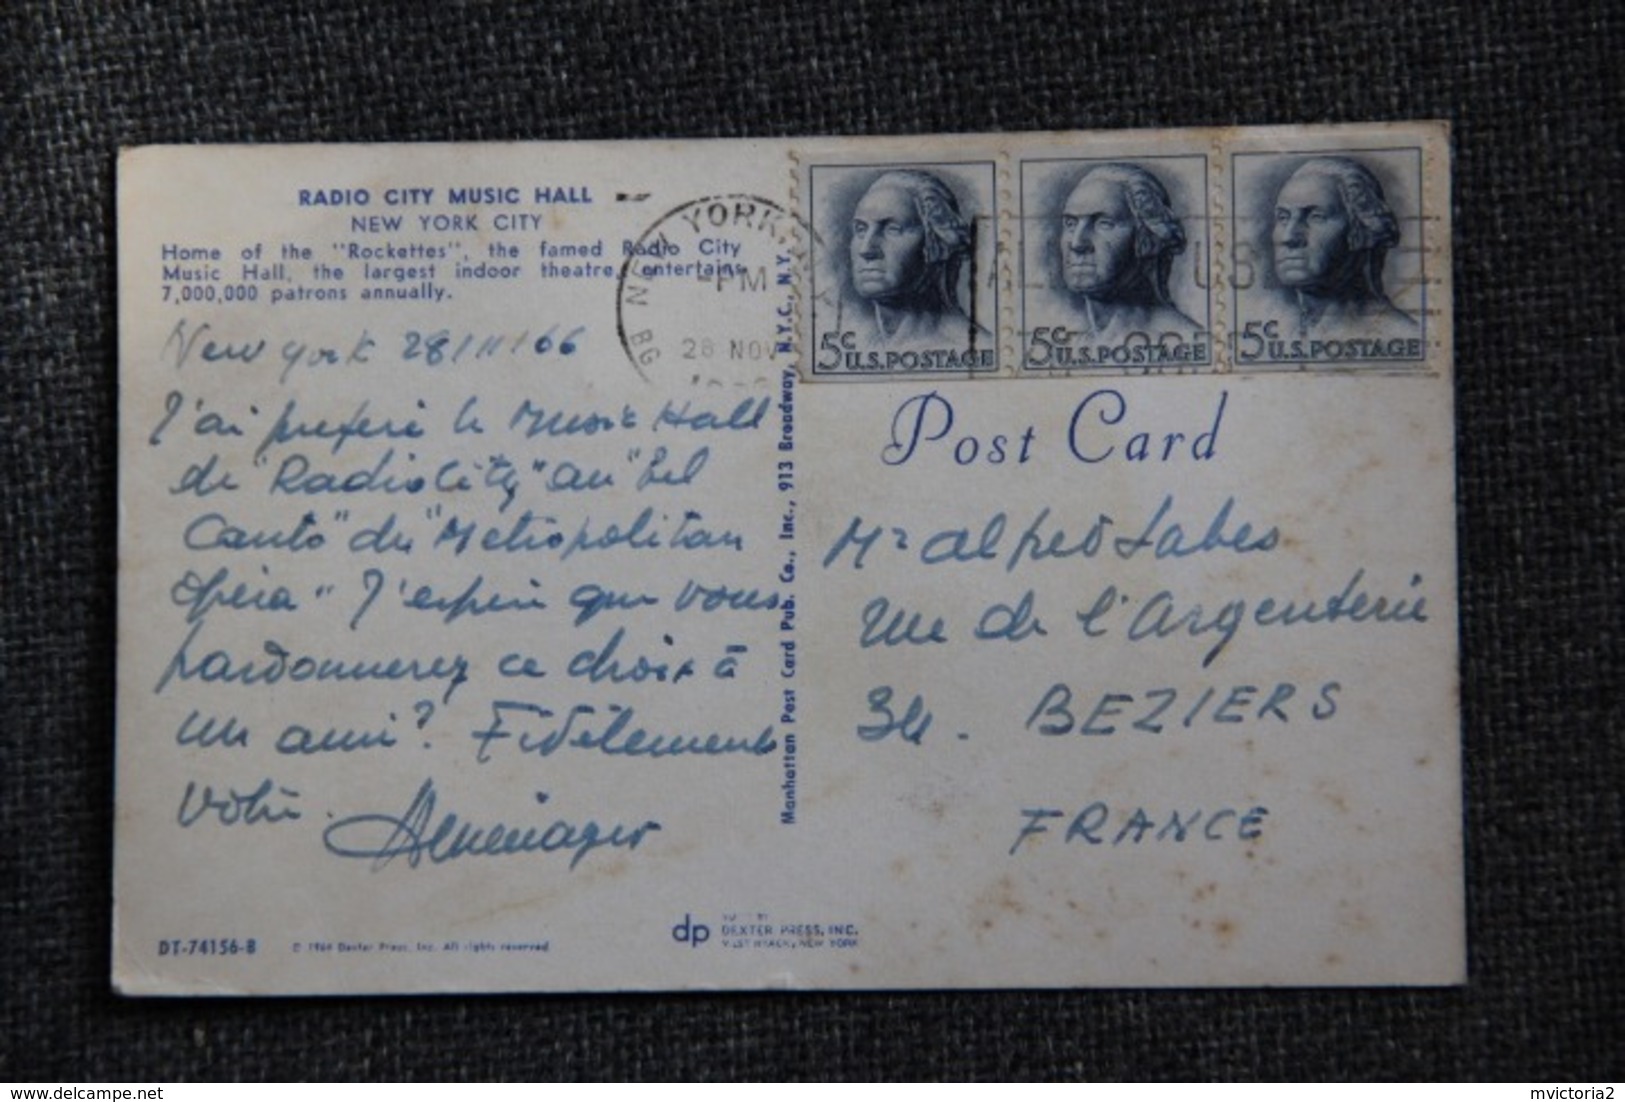 RADIO CITY MUSIC HALL
NEW YORK CITY
Home of the "Rockettes", the famed Radio City
Music Hall, the largest indoor theatre, entertains
7,000,000 patrons annually.
New York 28/11/66
J'ai préféré le Music Hall
de "Radio City" au "bel
Canto" du "Metropolitan
Opéra" J'espère que vous
pardonnerez ce choix à
un ami? Fidèlement
Votre.
DT-74156-B
© 1964 Dexter Press, Inc. All rights reserved
dp
DEXTER PRESS, INC.
WEST NYACK, NEW YORK
Manhattan Post Card Pub. Co., Inc., 913 Broadway, N.Y.C., N.Y.
NEW YORK, N.Y.
PM
28 NOV
BG
5c U.S.POSTAGE
5c U.S.POSTAGE
5c U.S.POSTAGE
Post Card
Mr Alfred Labes
Rue de l'Argenterie
34. BEZIERS
FRANCE
delcampe.net
mvictoria2